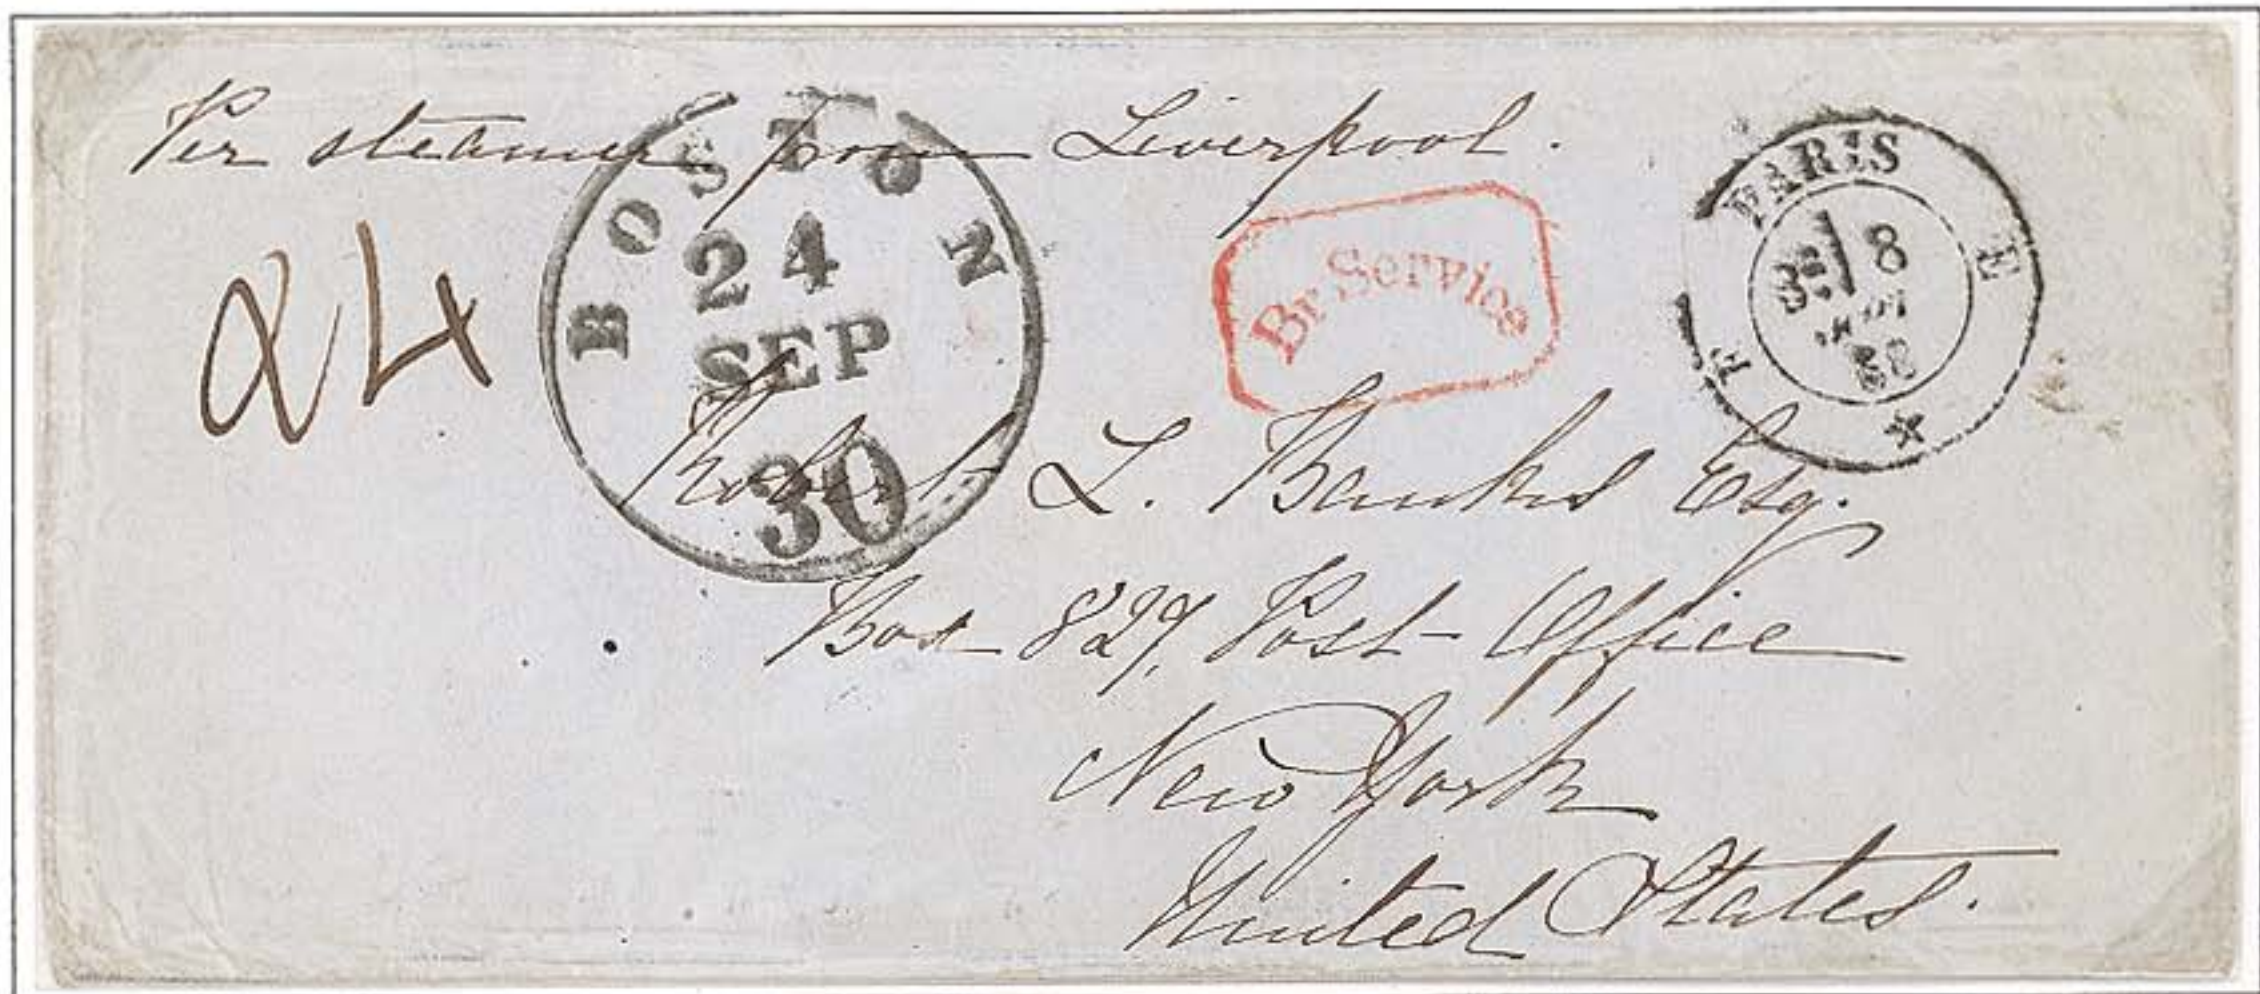 Per steamer from Liverpool.
24
BOSTON
24
SEP
30
Br Service
PARIS
E
8
F
Robert L. Banks Esq.
Box 827, Post Office
New York
United States.